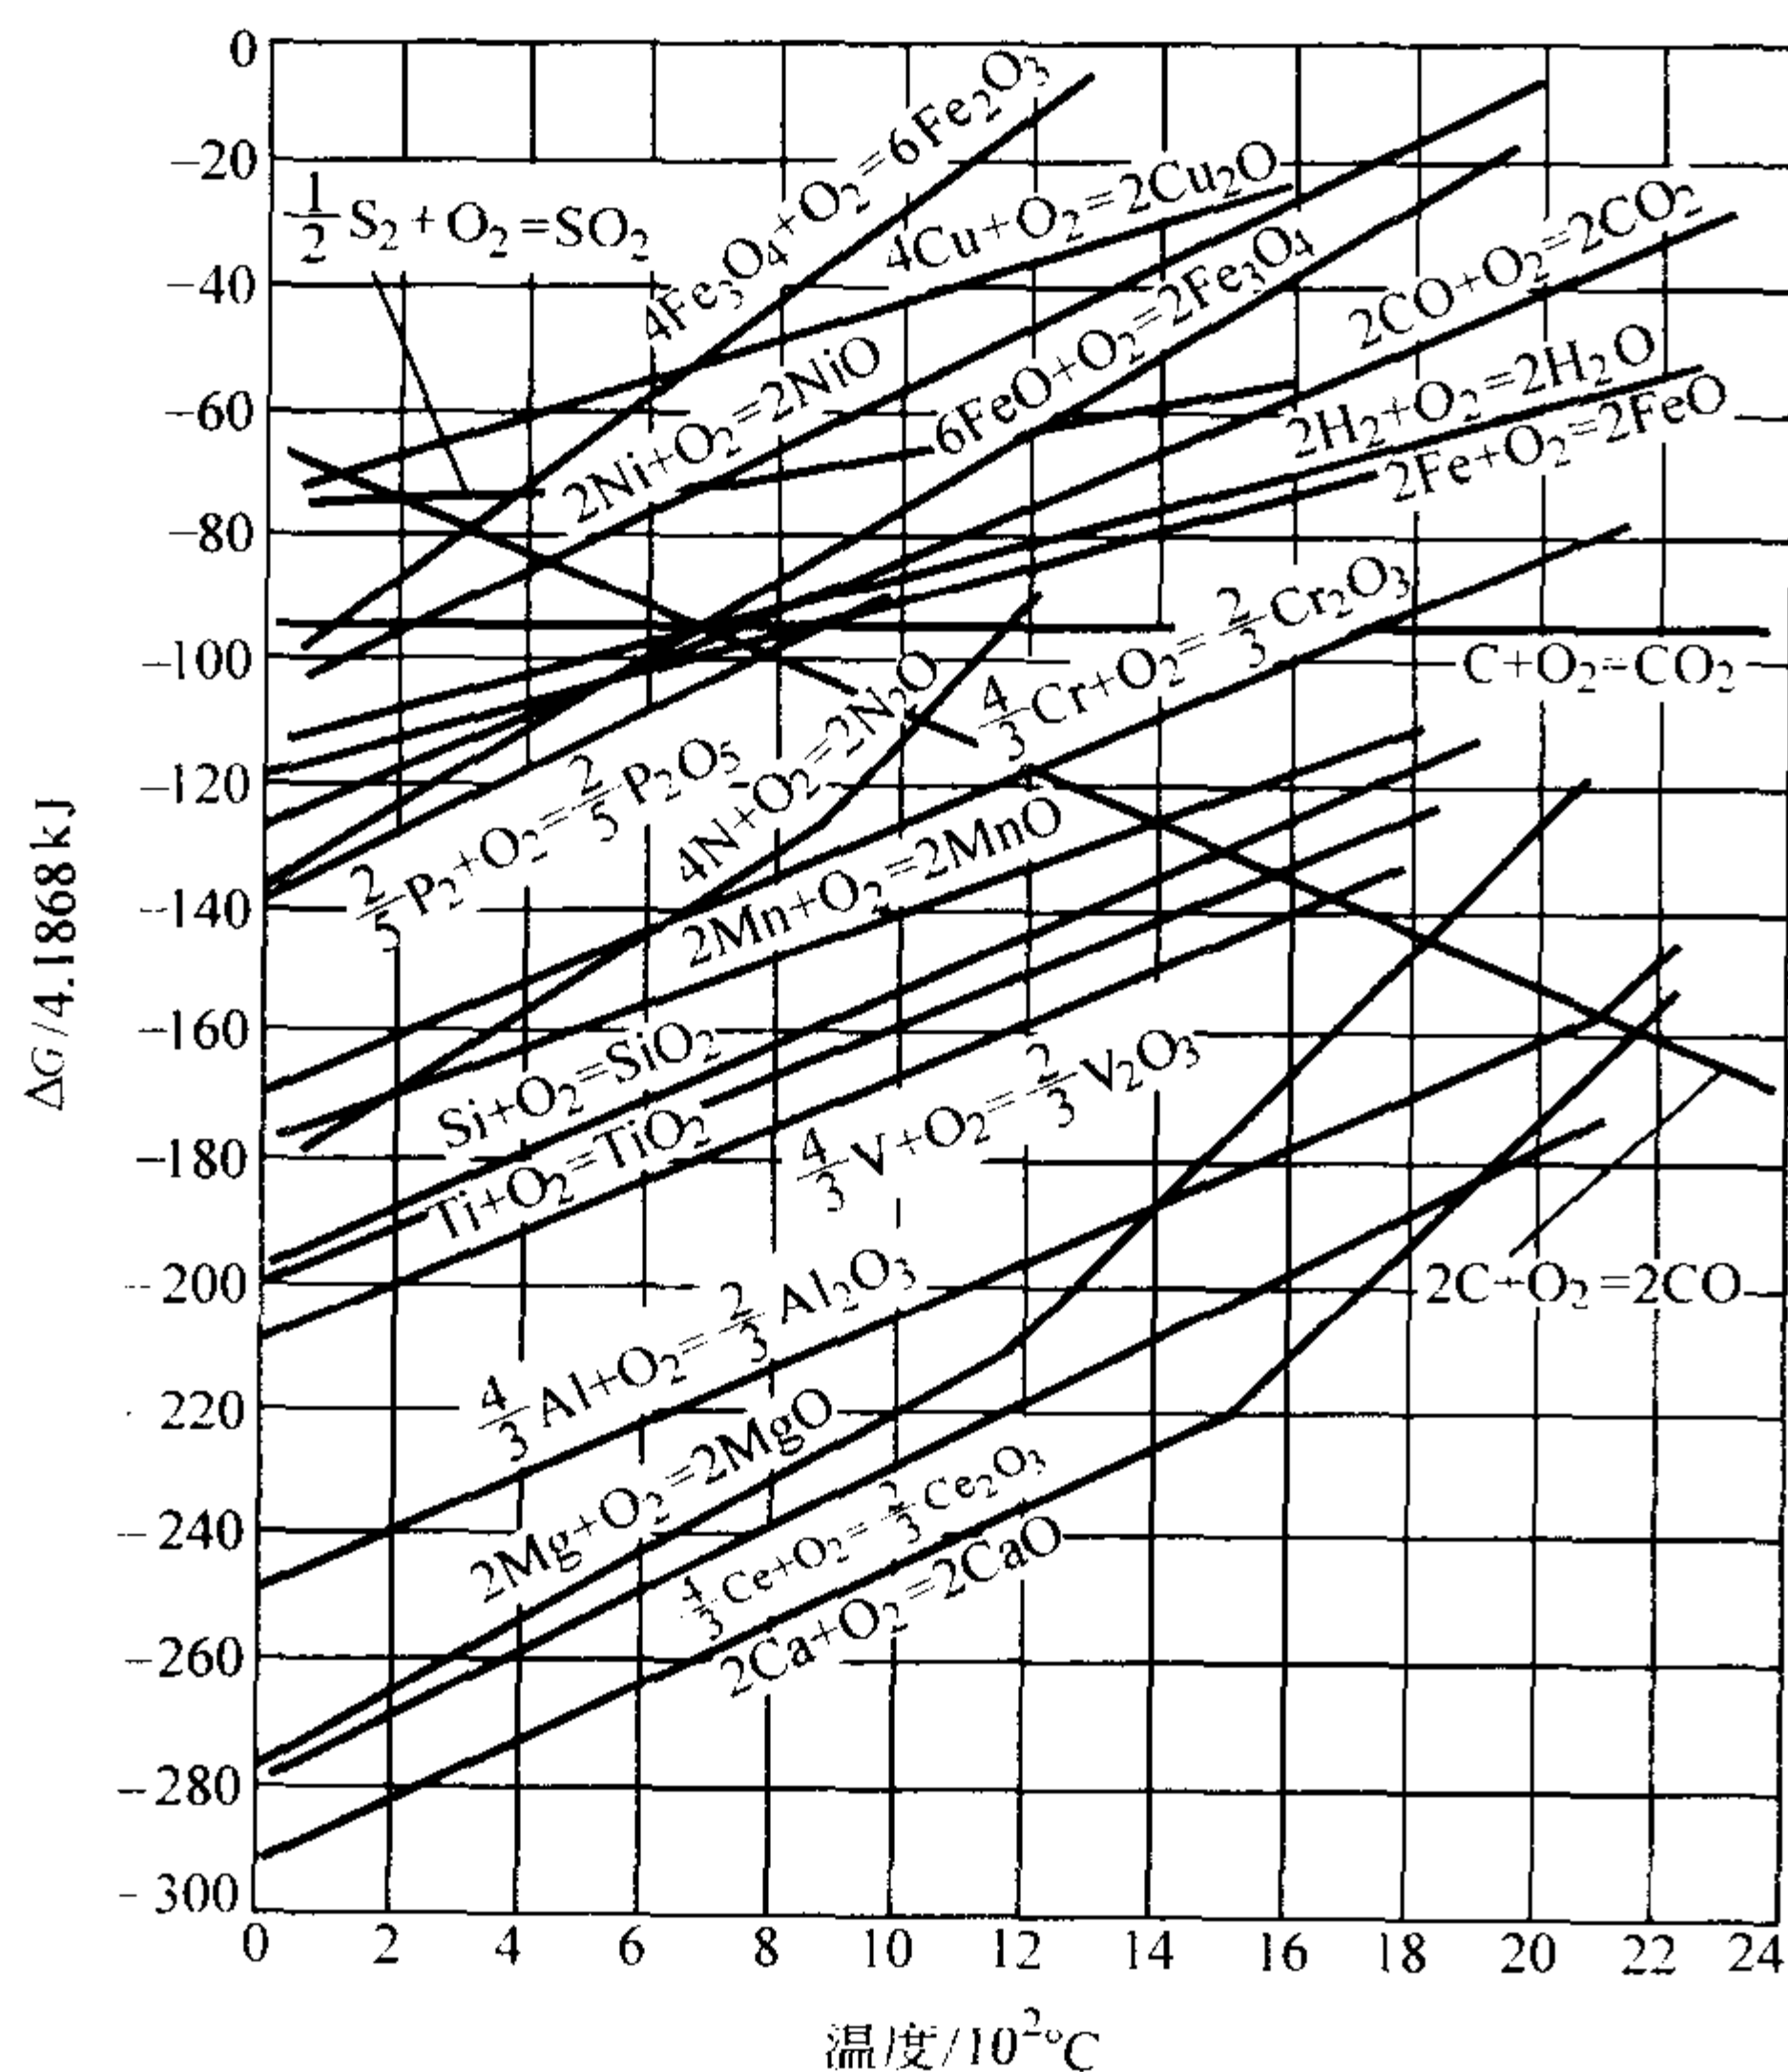 0
−20
−40
−60
−80
−100
−120
−140
−160
−180
−200
220
−240
−260
−280
−300
ΔG/4.1868kJ
4Fe₃O₄+O₂=6Fe₂O₃
½S₂+O₂=SO₂
4Cu+O₂=2Cu₂O
2Ni+O₂=2NiO
6FeO+O₂=2Fe₃O₄
2CO+O₂=2CO₂
2H₂+O₂=2H₂O
2Fe+O₂=2FeO
C+O₂=CO₂
4/3Cr+O₂=2/3Cr₂O₃
2/5P₂+O₂=2/5P₂O₅
4N+O₂=2N₂O
2Mn+O₂=2MnO
Si+O₂=SiO₂
Ti+O₂=TiO₂
4/3V+O₂=2/3V₂O₃
2C+O₂=2CO
4/3Al+O₂=2/3Al₂O₃
2Mg+O₂=2MgO
4/3Ce+O₂=2/3Ce₂O₃
2Ca+O₂=2CaO
0 2 4 6 8 10 12 14 16 18 20 22 24
温度/10²°C